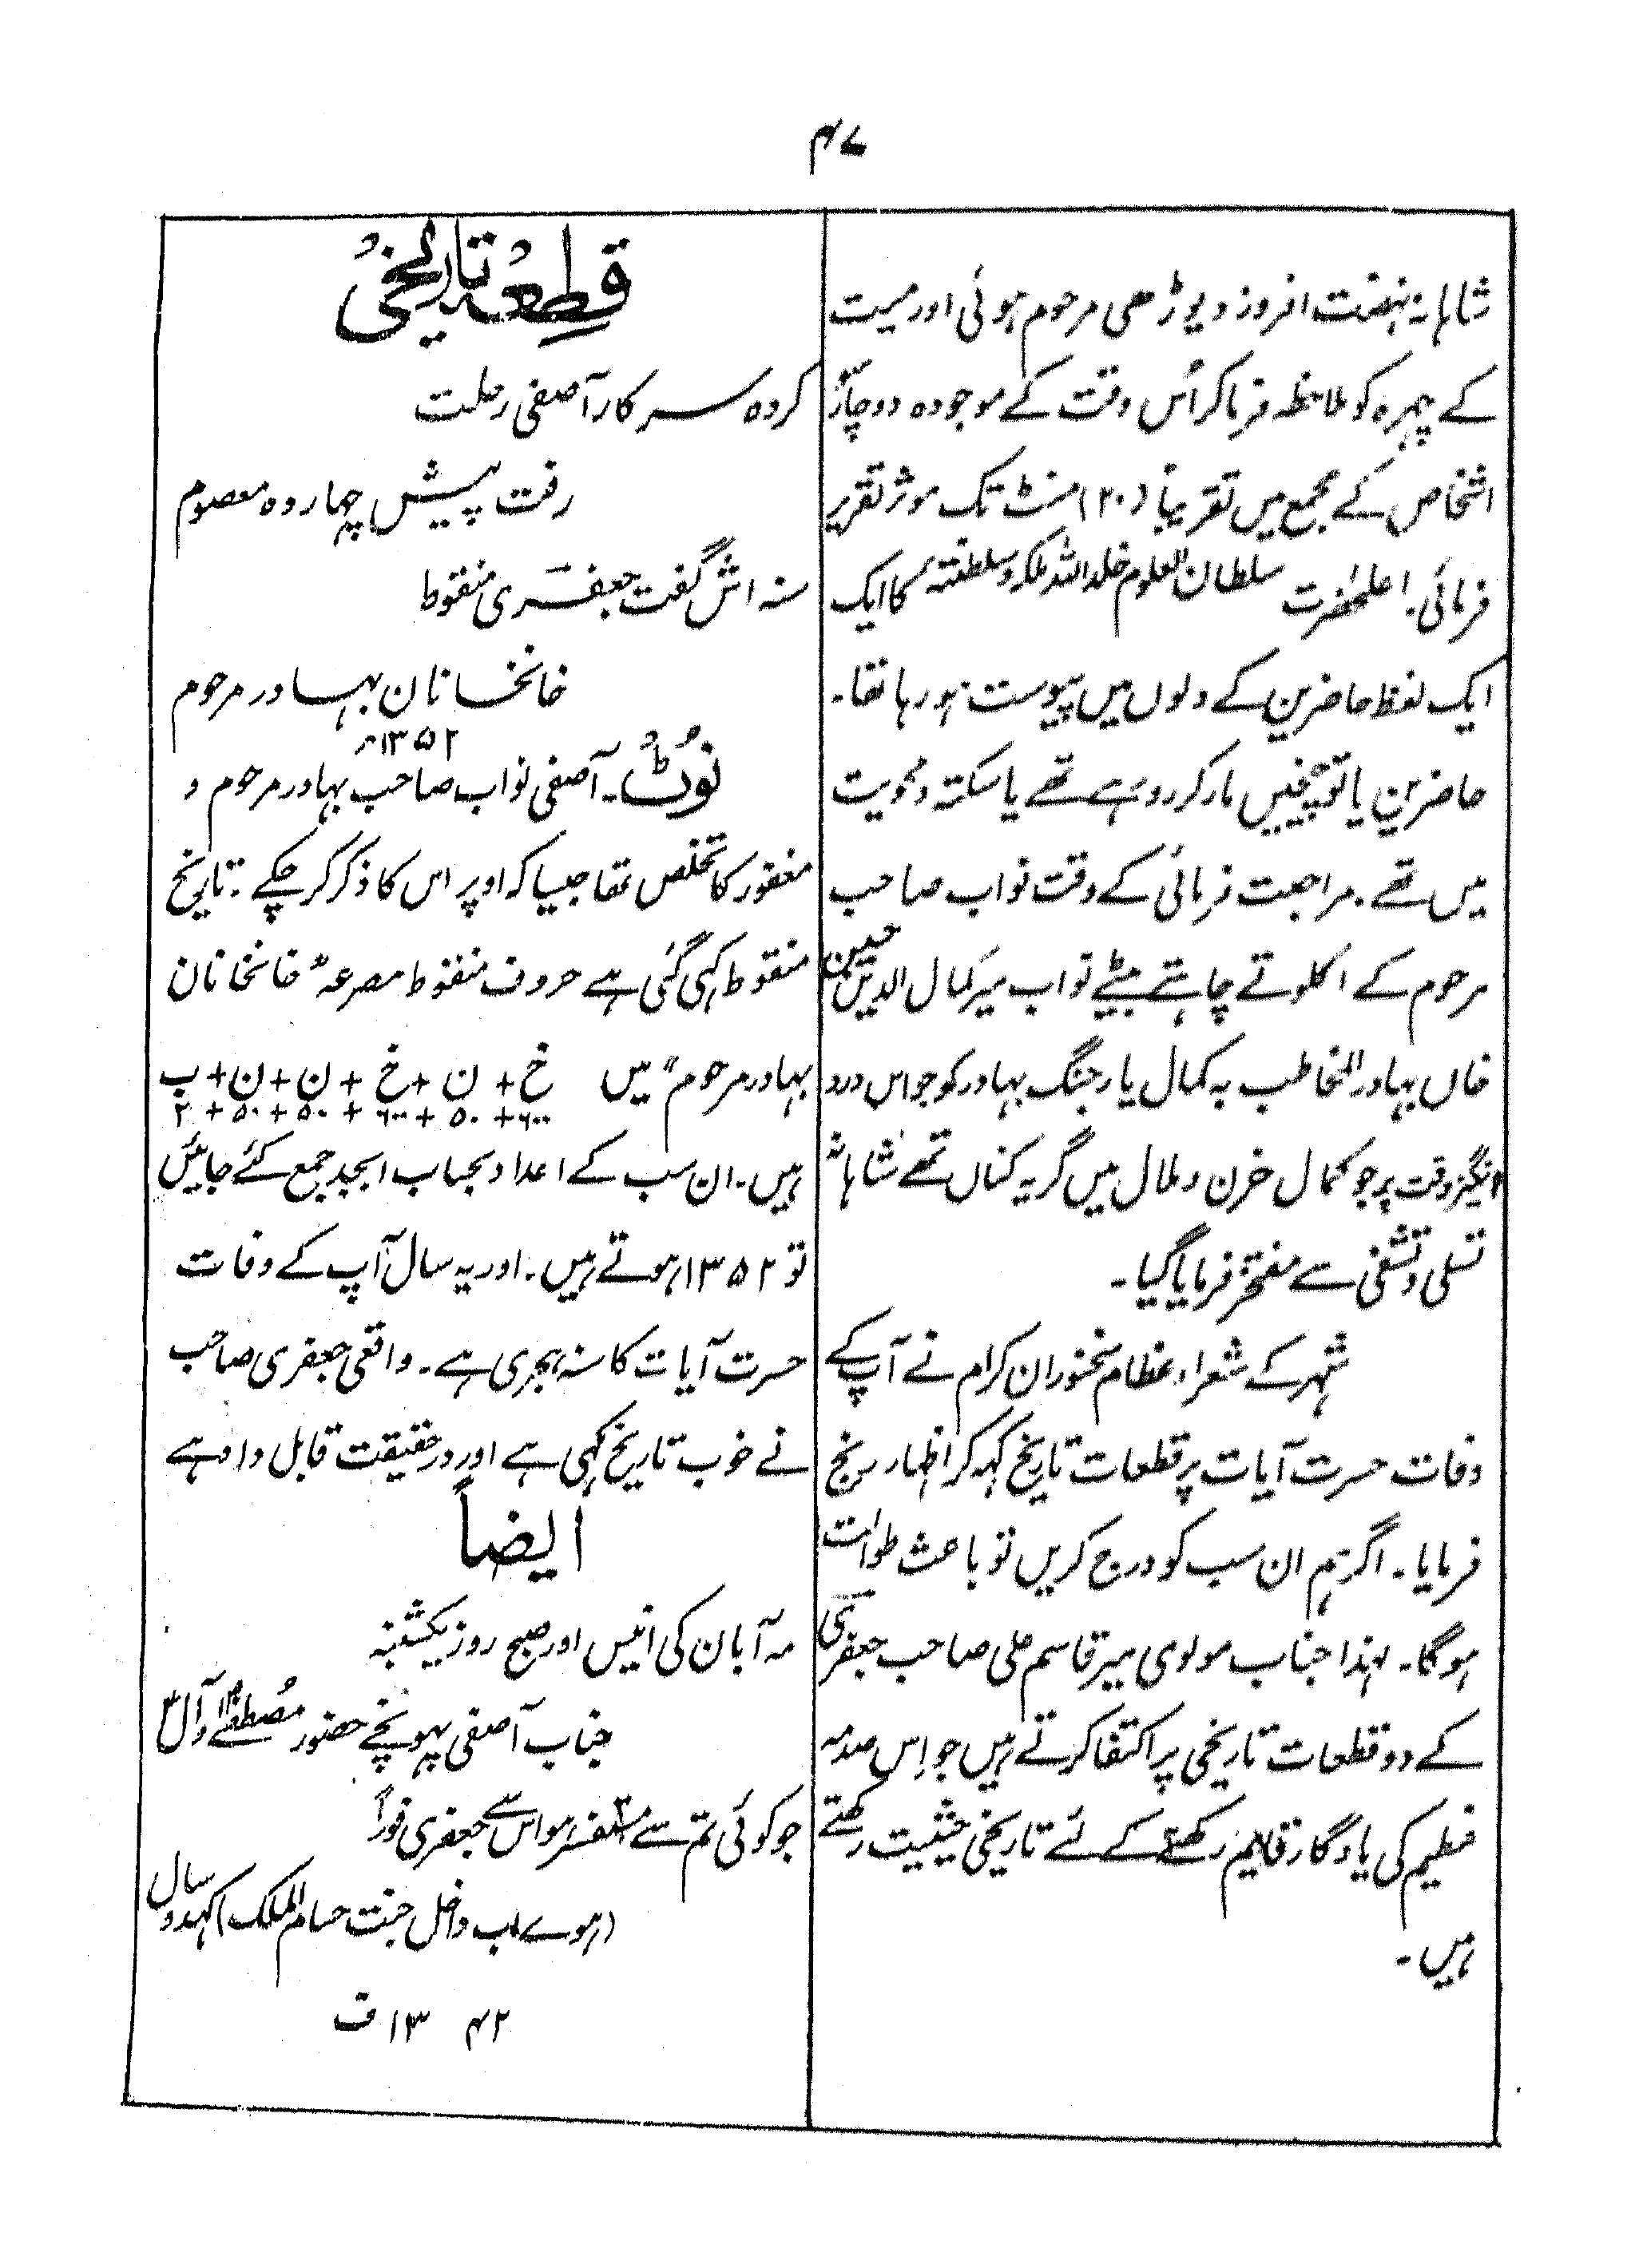 ۴۷
شاہانہ نہضت افروز دیوڑھی مرحوم ہوئی اور میت
کے چہرہ کو ملاحظہ فرماکر اُس وقت کے موجودہ دو چار
اشخاص کے مجمع میں تقریباً (۲۰) منٹ تک موثر تقریر
فرمائی۔ اعلٰحضرت سلطان العلوم خلد اللہ ملکہ و سلطنتہ کا ایک
ایک لفظ حاضرین کے دلوں میں پیوست ہو رہا تھا۔
حاضرین یا تو چیخیں مار کر رو رہے تھے یا سکتہ و محویت
میں تھے۔ مراجعت فرمائی کے وقت نواب صاحب
مرحوم کے اکلوتے چاہتے بیٹے نواب میر کمال الدین حسین
خاں بہادر المخاطب بہ کمال یار جنگ بہادر کو جو اس درد
انگیز وقت پر جو کمال حزن و ملال میں گریہ کناں تھے شاہانہ
تسلی و تشفی سے مفتخر فرمایا گیا۔
شہر کے شعراء عظام سخنوران کرام نے آپ کے
وفات حسرت آیات پر قطعات تاریخ کہہ کر اظہار رنج
فرمایا۔ اگر ہم ان سب کو درج کریں تو باعث طوالت
ہوگا۔ لہذا جناب مولوی میر قاسم علی صاحب جعفری
کے دو قطعات تاریخی پر اکتفا کرتے ہیں جو اِس صدمہ
عظیم کی یادگار قایم رکھنے کے لئے تاریخی حیثیت رکھتے
ہیں۔
قطعہ تاریخی
کردہ سرکار آصفی رحلت
رفت پیش چہاردہ معصوم
سنہ اش گفت جعفری منقوط
خانخانان بہادر مرحوم
۱۳۵۲ھ
نوٹ۔ آصفی نواب صاحب بہادر مرحوم و
مغفور کا تخلص تھا جیسا کہ اوپر اس کا ذکر کر چکے۔ تاریخ
منقوط کہی گئی ہے حروف منقوط مصرعہ "خانخانان
بہادر مرحوم" میں خ + ن + خ + ن + ن + ب
۶۰۰ + ۵۰ + ۶۰۰ + ۵۰ + ۵۰ + ۲
ہیں۔ ان سب کے اعداد بحساب ابجد جمع کئے جائیں
تو ۱۳۵۲ ہوتے ہیں۔ اور یہ سال آپ کے وفات
حسرت آیات کا سنہ ہجری ہے۔ واقعی جعفری صاحب
نے خوب تاریخ کہی ہے اور درحقیقت قابل داد ہے
ایضاً
مہ آبان کی انیس اور صبح روز یکشنبہ
جناب آصفی پہونچے حضور مصطفےٰ و آل
جو کوئی تم سے مستفسر ہو اس سے جعفری فوراً
(ہوے اب داخل جنت حسام الملک) کہدو سال
۱۳۴۲ ف